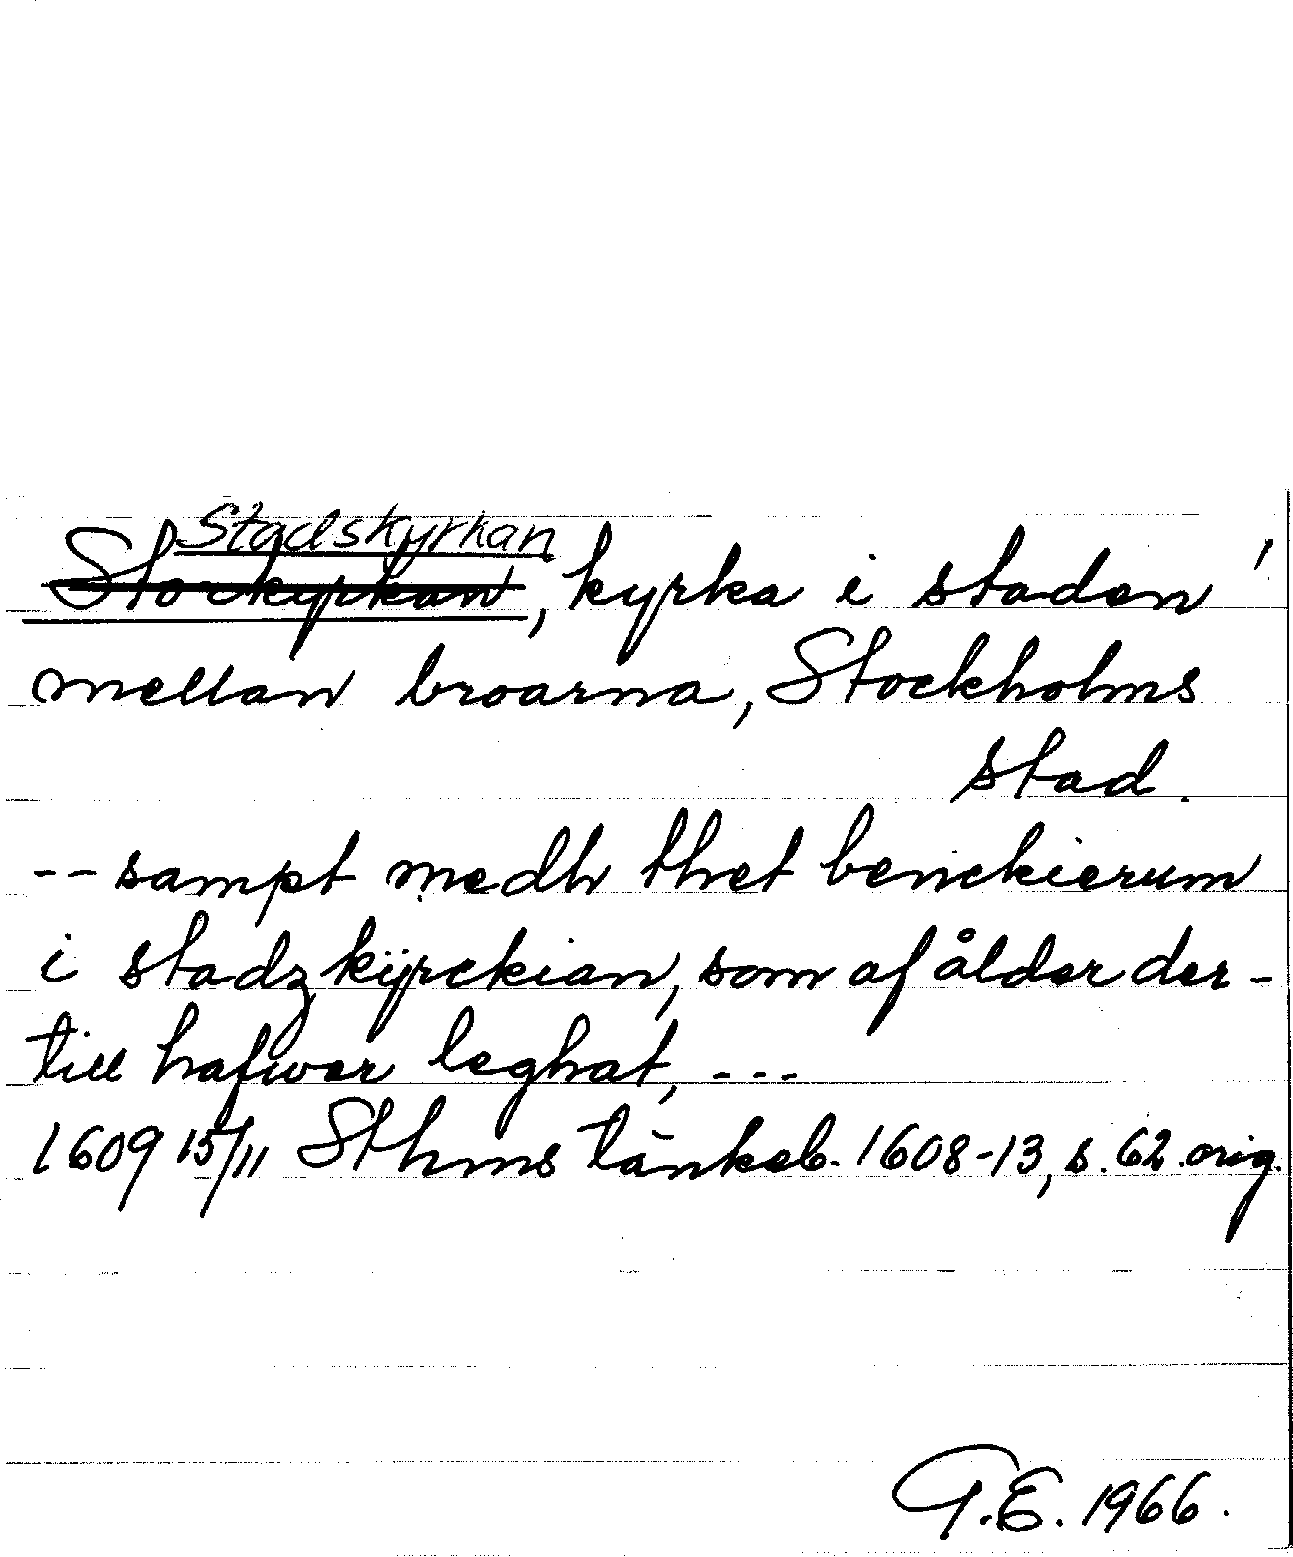 Stadskyrkan
Storkyrkan, kyrka i staden
mellan broarna, Stockholms
stad.
-- sampt medh thet benckierum
i stadz kÿrckian, som af ålder der-
till hafwer leghat, ---
1609 15/11 Sthms tänkeb. 1608-13, s. 62 orig.
G.E. 1966.